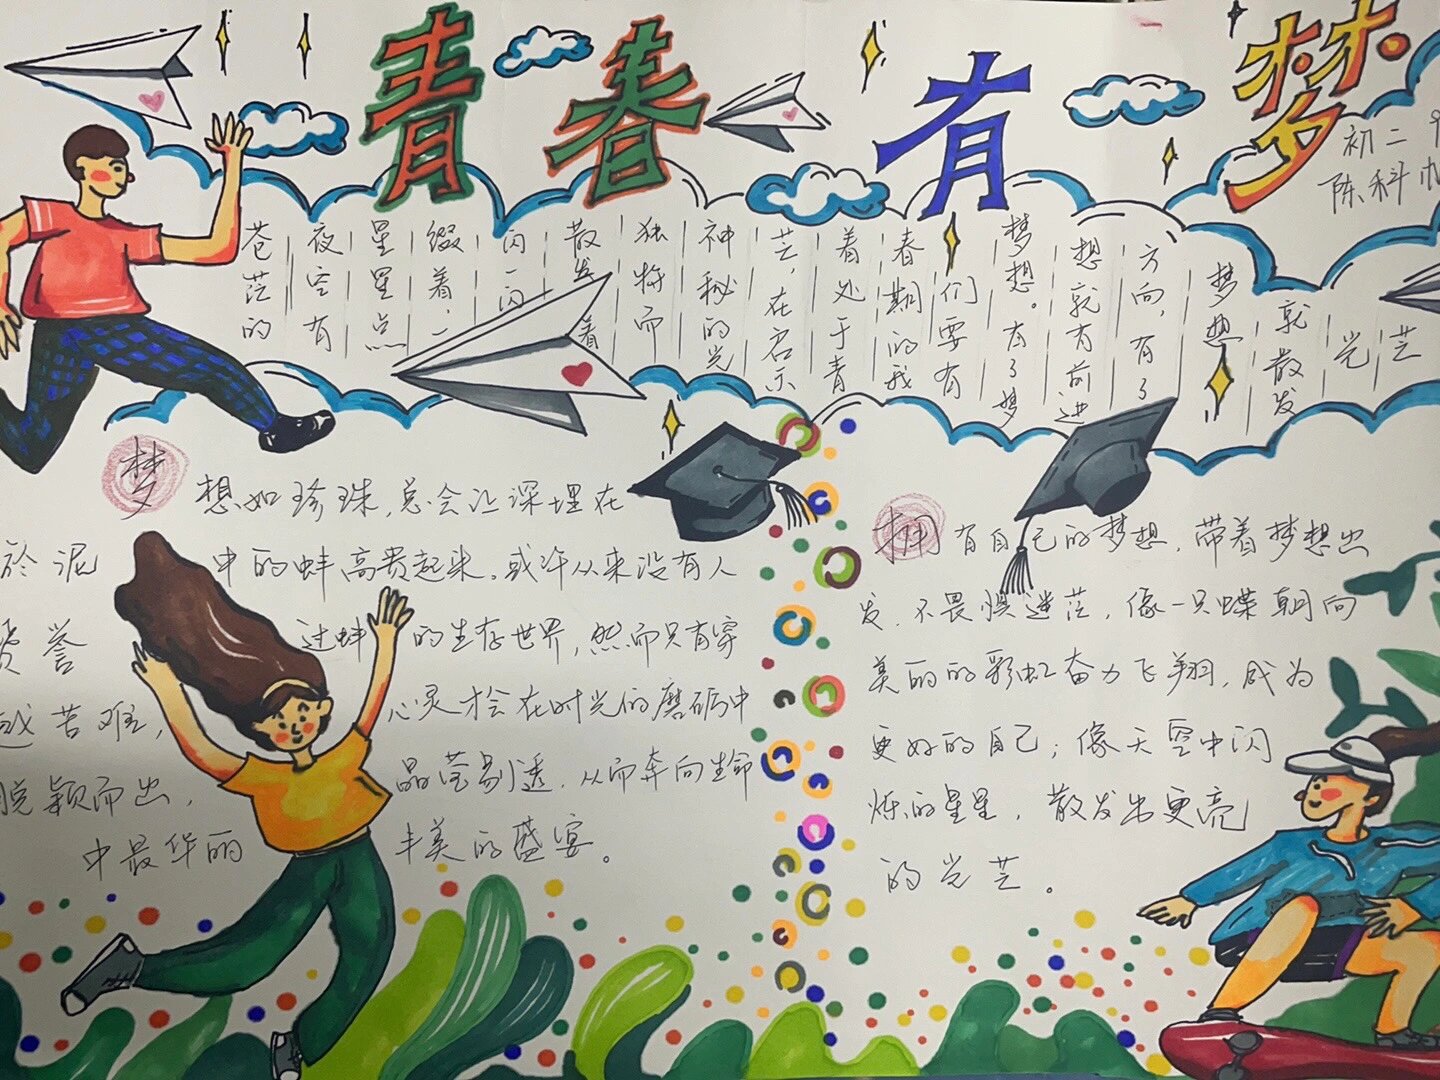 青春有梦
初二
陈科帆
苍茫的
夜空有
星星点
缀着，一
闪一闪
散发着
独特而
神秘的光
芒，在启示
着处于青
春期的我
们要有
梦想。有了梦
想就有前进
方向，有了
梦想，
就散发
光芒
梦想如珍珠，总会让深埋在
於泥中的蚌高贵起来。或许从来没有人
赞誉过蚌的生存世界，然而只有穿
越苦难，心灵才会在时光的磨砺中
脱颖而出，晶莹剔透，从而奔向生命
中最华丽丰美的盛宴。
拥有自己的梦想，带着梦想出
发，不畏惧迷茫，像一只蝶朝向
美丽的彩虹奋力飞翔，成为
更好的自己；像天空中闪
烁的星星，散发出更亮
的光芒。